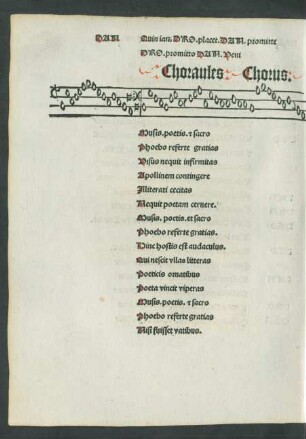 DAN. Quin iam. DRO. placet. DAN. promitte
DRO. promitto DAN. Veni
Choraules: Chorus:
Musis. poetis. ⁊ sacro
Phoebo referte gratias
Visus nequit infirmitas
Apollinem contingere
Illiterati cecitas
Nequit poetam cernere.
Musis. poetis. et sacro
Phoebo referte gratias.
Hinc hostis est audaculus.
Qui nescit vllas litteras
Poeticis omatibus
Poeta vincit viperas
Musis. poetis. ⁊ sacro
Phoebo referte gratias
Nisi fuisset vatibus.